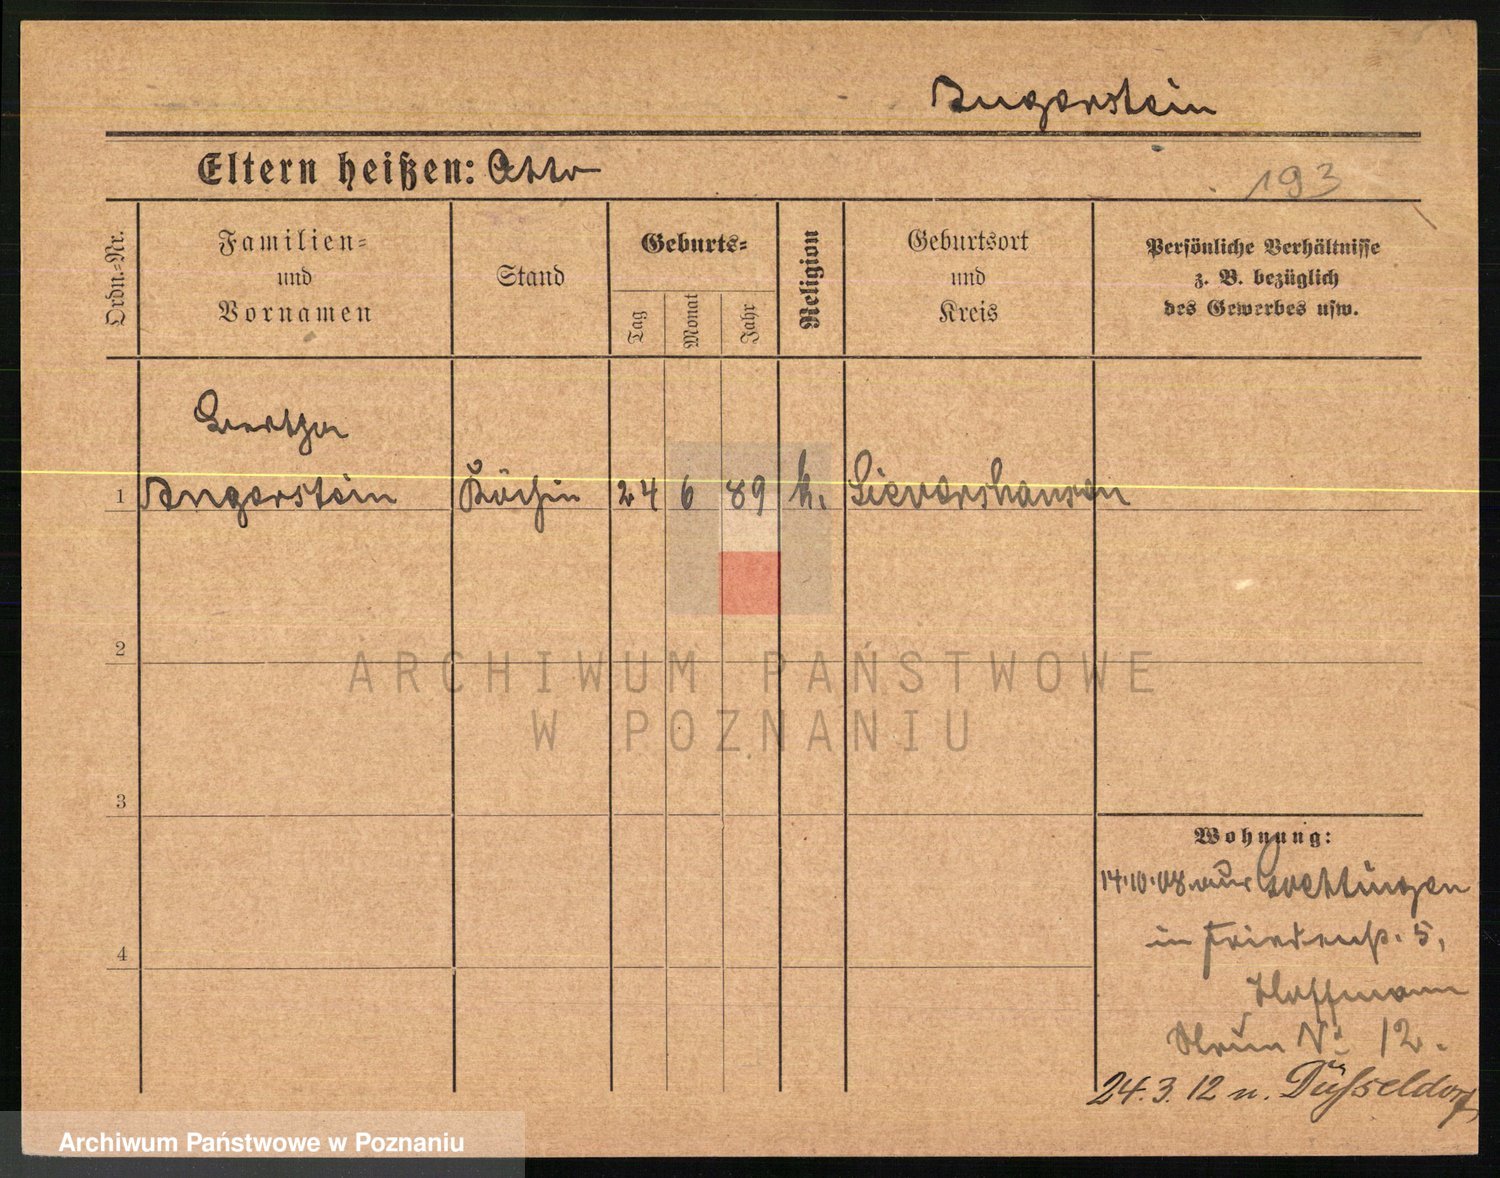 Angerstein
Eltern heißen: Otto
193
Ordn.-Nr.
Familien-
und
Vornamen
Stand
Geburts-
Tag
Monat
Jahr
Religion
Geburtsort
und
Kreis
Persönliche Verhältnisse
z. B. bezüglich
des Gewerbes usw.
1
Angerstein Köchin 24 6 89 k. Lievershausen
2
ARCHIWUM PAŃSTWOWE
W POZNANIU
3
Wohnung:
14.10.08 aus Goettingen
in Friedenstr. 5,
4
Hoffmann
No 12.
24.3.12 n. Düsseldorf
Archiwum Państwowe w Poznaniu